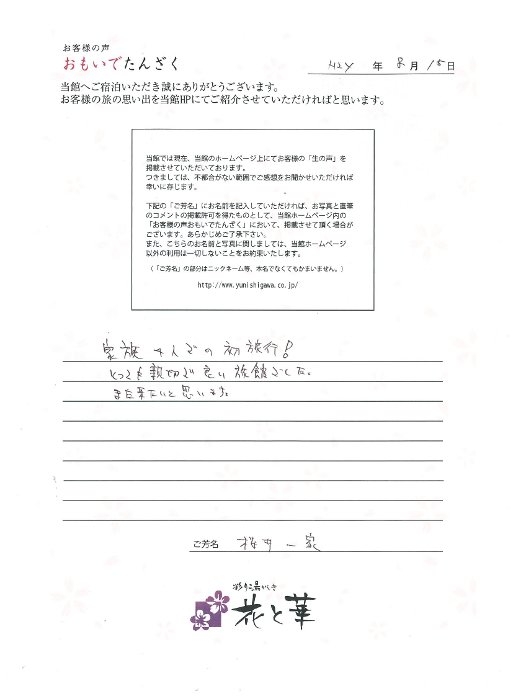 お客様の声
おもいでたんざく
年 8月 15日
当館へご宿泊いただき誠にありがとうございます。
お客様の旅の思い出を当館HPにてご紹介させていただければと思います。
当館では現在、当館のホームページ上にてお客様の「生の声」を
掲載させていただいております。
つきましては、不都合がない範囲でご感想をお聞かせいただければ
幸いに存じます。
下記の「ご芳名」にお名前を記入していただければ、お写真と直筆
のコメントの掲載許可を得たものとして、当館ホームページ内の
「お客様の声おもいでたんざく」において、掲載させて頂く場合が
ございます。あらかじめご了承下さい。
また、こちらのお名前と写真に関しましては、当館ホームページ
以外の利用は一切しないことをお約束いたします。
(「ご芳名」の部分はニックネーム等、本名でなくてもかまいません。)
http://www.yunishigawa.co.jp/
家族4人での初旅行!
とっても親切で良い旅館でした。
また来たいと思います。
ご芳名 桜井一家
花と華